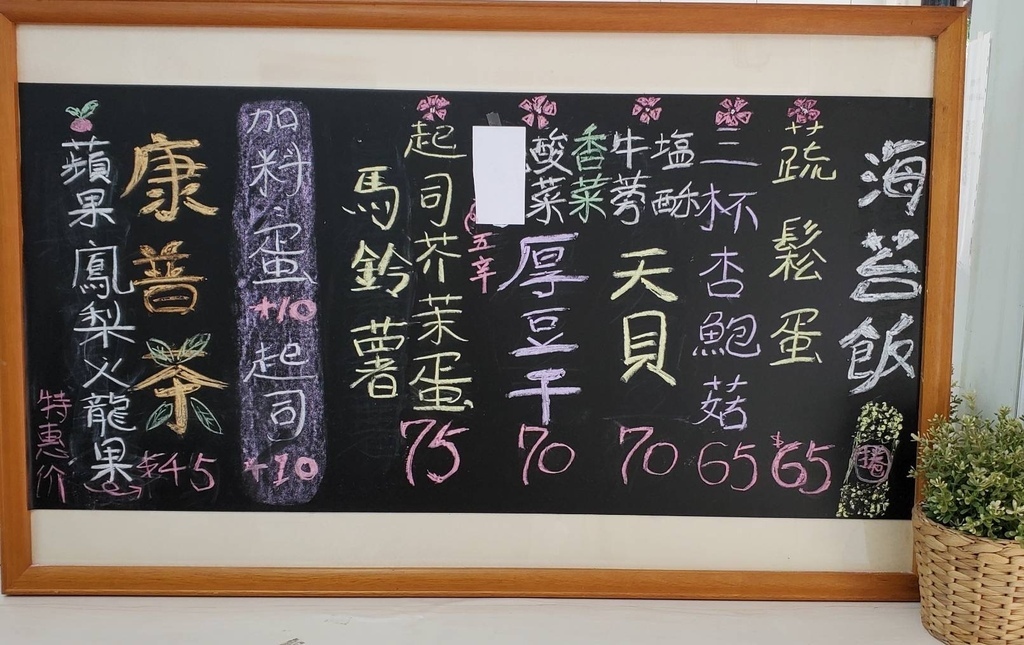 海苔飯
蔬鬆蛋
$65
三杯杏鮑菇
65
塩酥
牛蒡
天貝
70
香菜
酸菜
厚豆干
70
五辛
起司芥茉蛋
馬鈴薯
75
加料蛋+10起司+10
康普茶
$45
蘋果鳳梨火龍果
特惠价